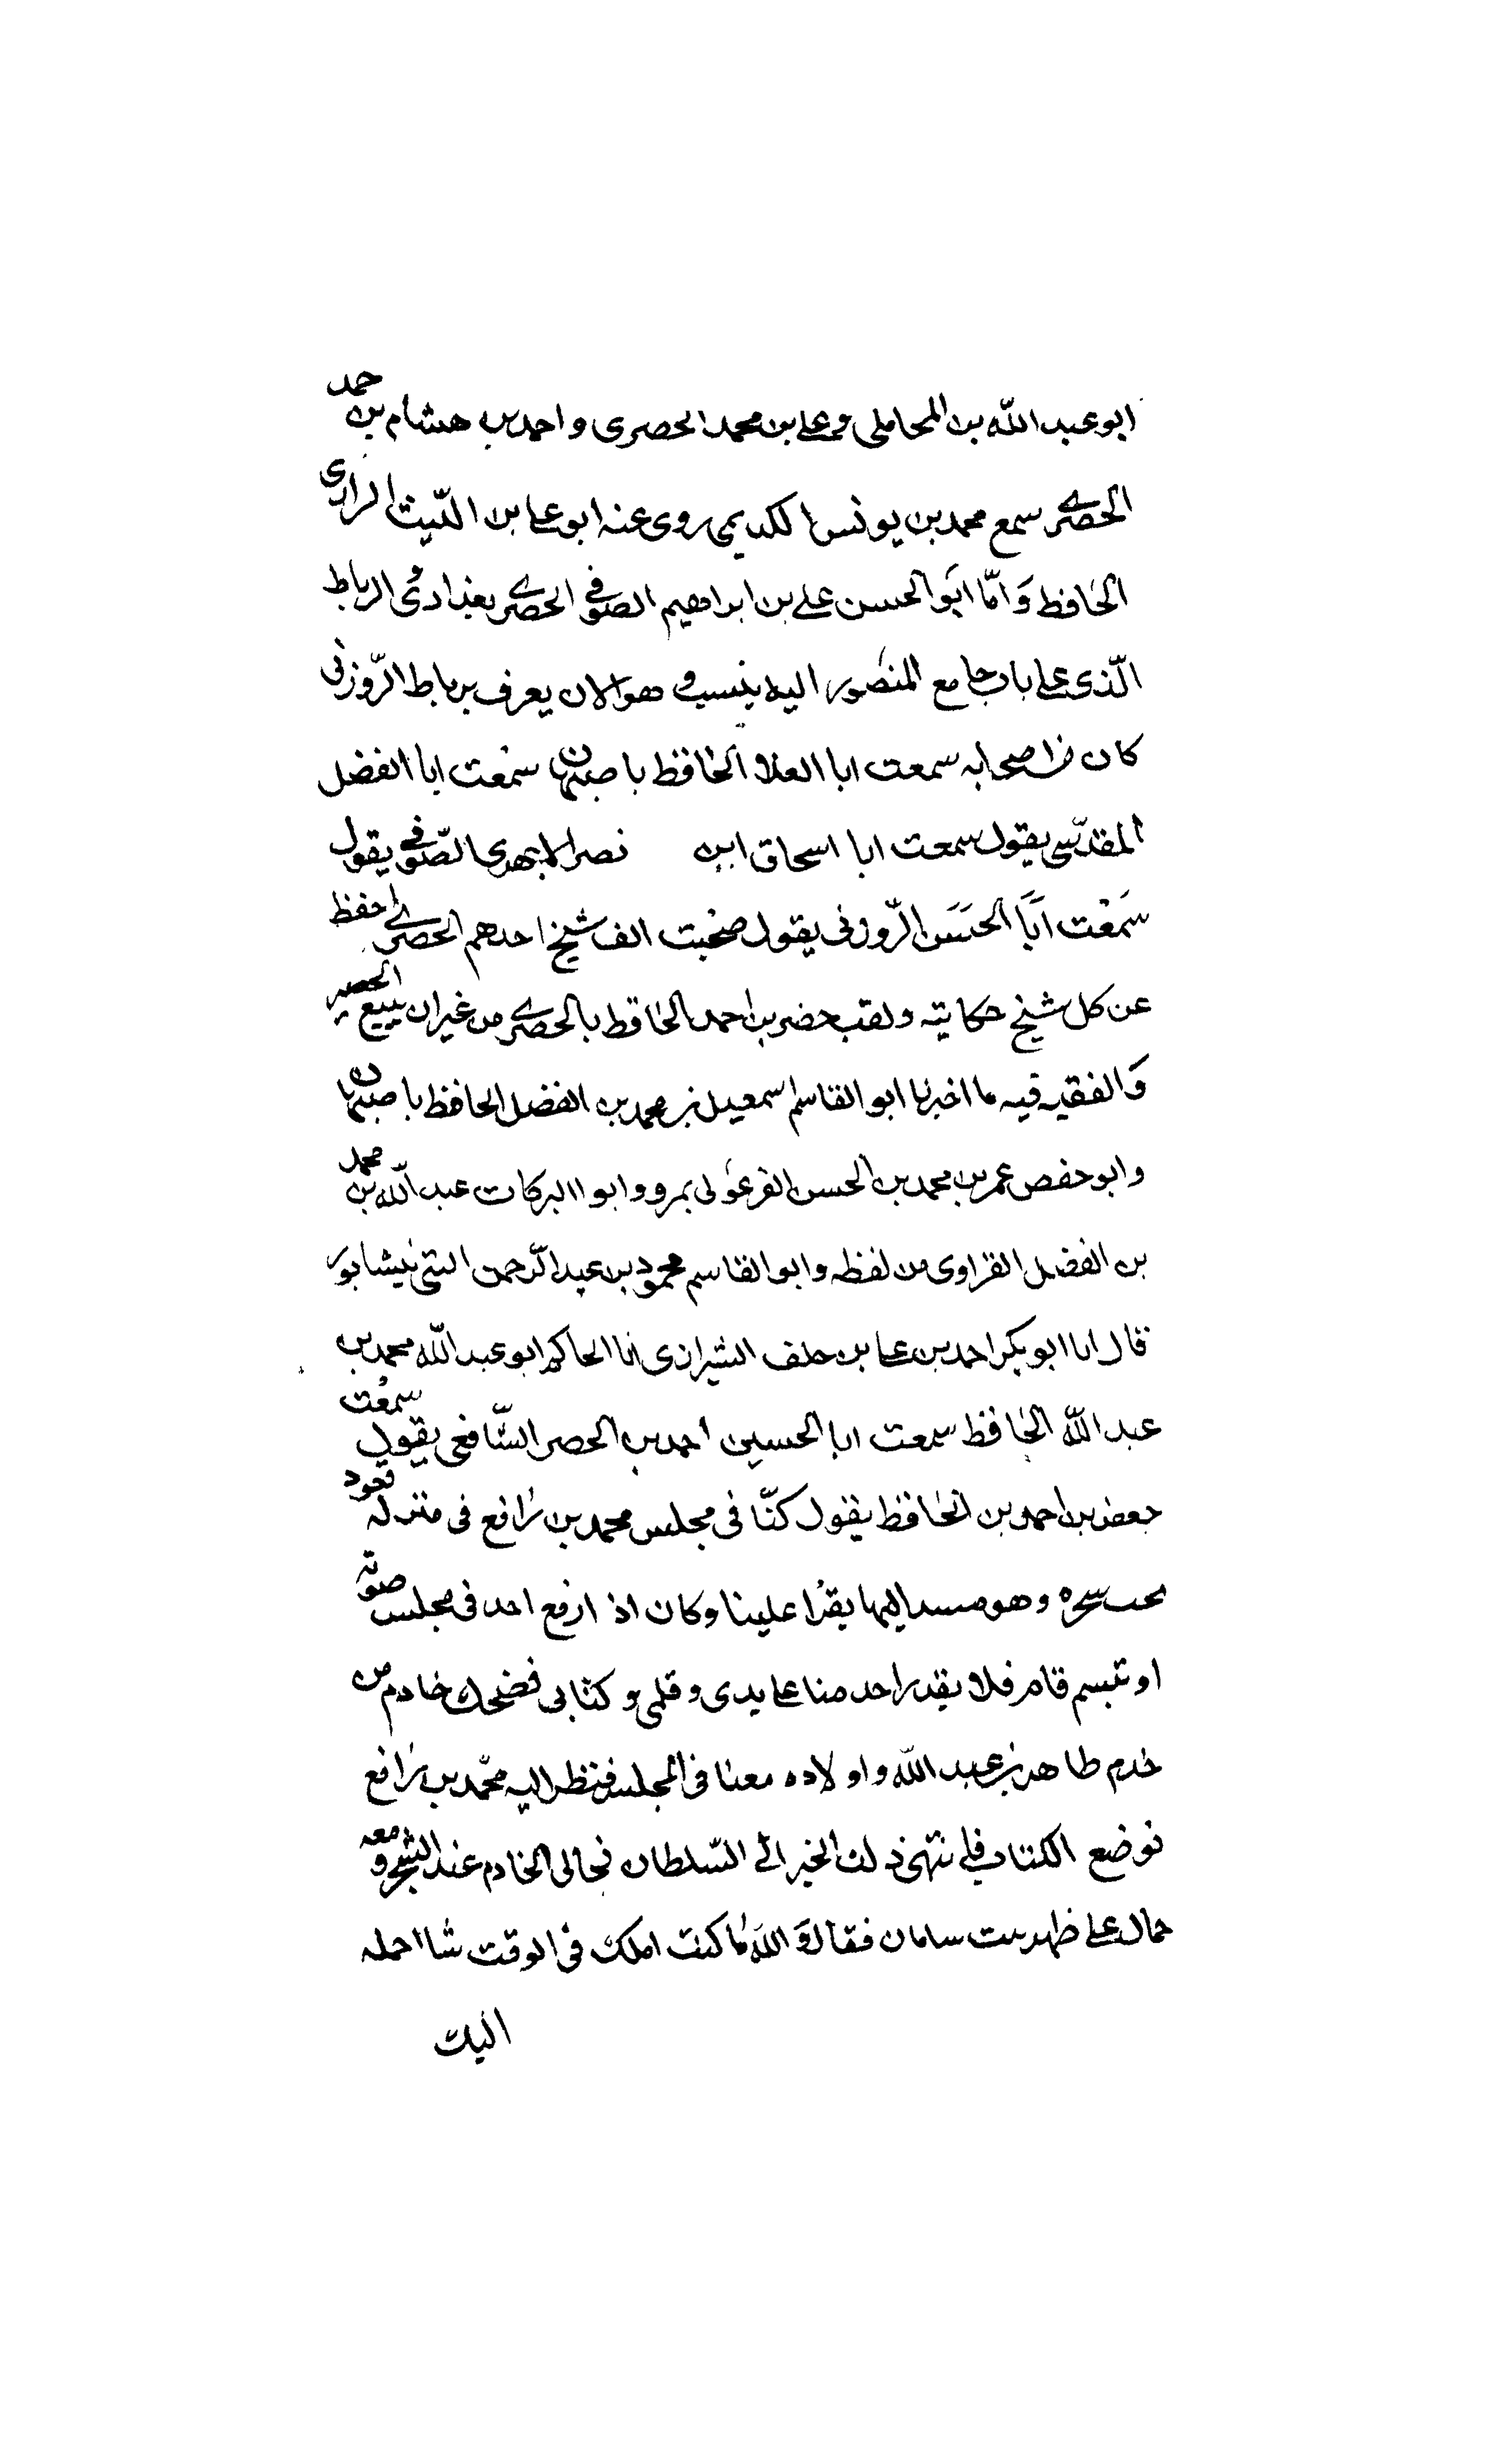 ابو عبد الله بن المحاملى وعلى بن محمد الحصرى واحمد بن هشام بن حمد
الحصرے سمع محمد بن يونس الكديمى روى عنه ابو على بن الليث الرازى
الحافظ وَامّا ابَو الحسن على بن ابراهيم الصوفے الحصرے بغدادى الرباط
الّذى على باب جامع المنصور اليه ينسب و هو الان يعرف برباط الزّوزنى
كان من اصحابه سمعت ابا العلا الحافظ باصبهان سمعت ابا الفضل
المقدّسى يقول سمعت ابا اسحاق ابن نصر الابهرى الصّوفے يقول
سَمعْت اَبَا الحسَن الزّوزنى يقول صحبت الف شيخ احدهم الحصرے احفظ
عن كل شيخ حكايته ولقب جعفر بن احمد الحافظ بالحصرے من غير ان يبيع الحصير
وَالفقيه فيه ما اخبرنا ابو القاسم اسمعيل بن محمد بن الفضل الحافظ باصبهان
وابو حفص عمر بن محمد بن الحسن الفرغولى بمرو وابو االبركات عبد الله بن محمد
بن الفضل الفراوى من لفظه وابو القاسم محمود بن عبد الرّحمن البتى نيشابور
قال انا ابو بكر احمد بن على بن خلف الشيرازى انا الحاكم ابو عبد الله محمد بن
عبد الله الحافظ سمعت ابا الحسين احمد بن الحصر الشّافعى يقول سمعت
جعفر بن احمد بن الحافظ يقول كنّا فى مجلس محمد بن رافع فى منزله قعود
تحت شجره وهو مستند اليها يقرا علينا وكان اذ ارفع احد فى مجلس صوته
او تبسم قام فلا يقدر احد منا على يدى و قلمى و كتابى فضحك خادم من
خدم طاهر بن عبد الله واولاده معنا فى المجلس فنظر اليه محمّد بن رافع
فوضع الكتاب فانتهى ذلك الخبر الى السّلطان فجائى الخادم عند الشجر ومعه
حمال على ظهره سامان فقال وَ اللهَ مَا كنت املك فى الوقت شا احمله
اليك